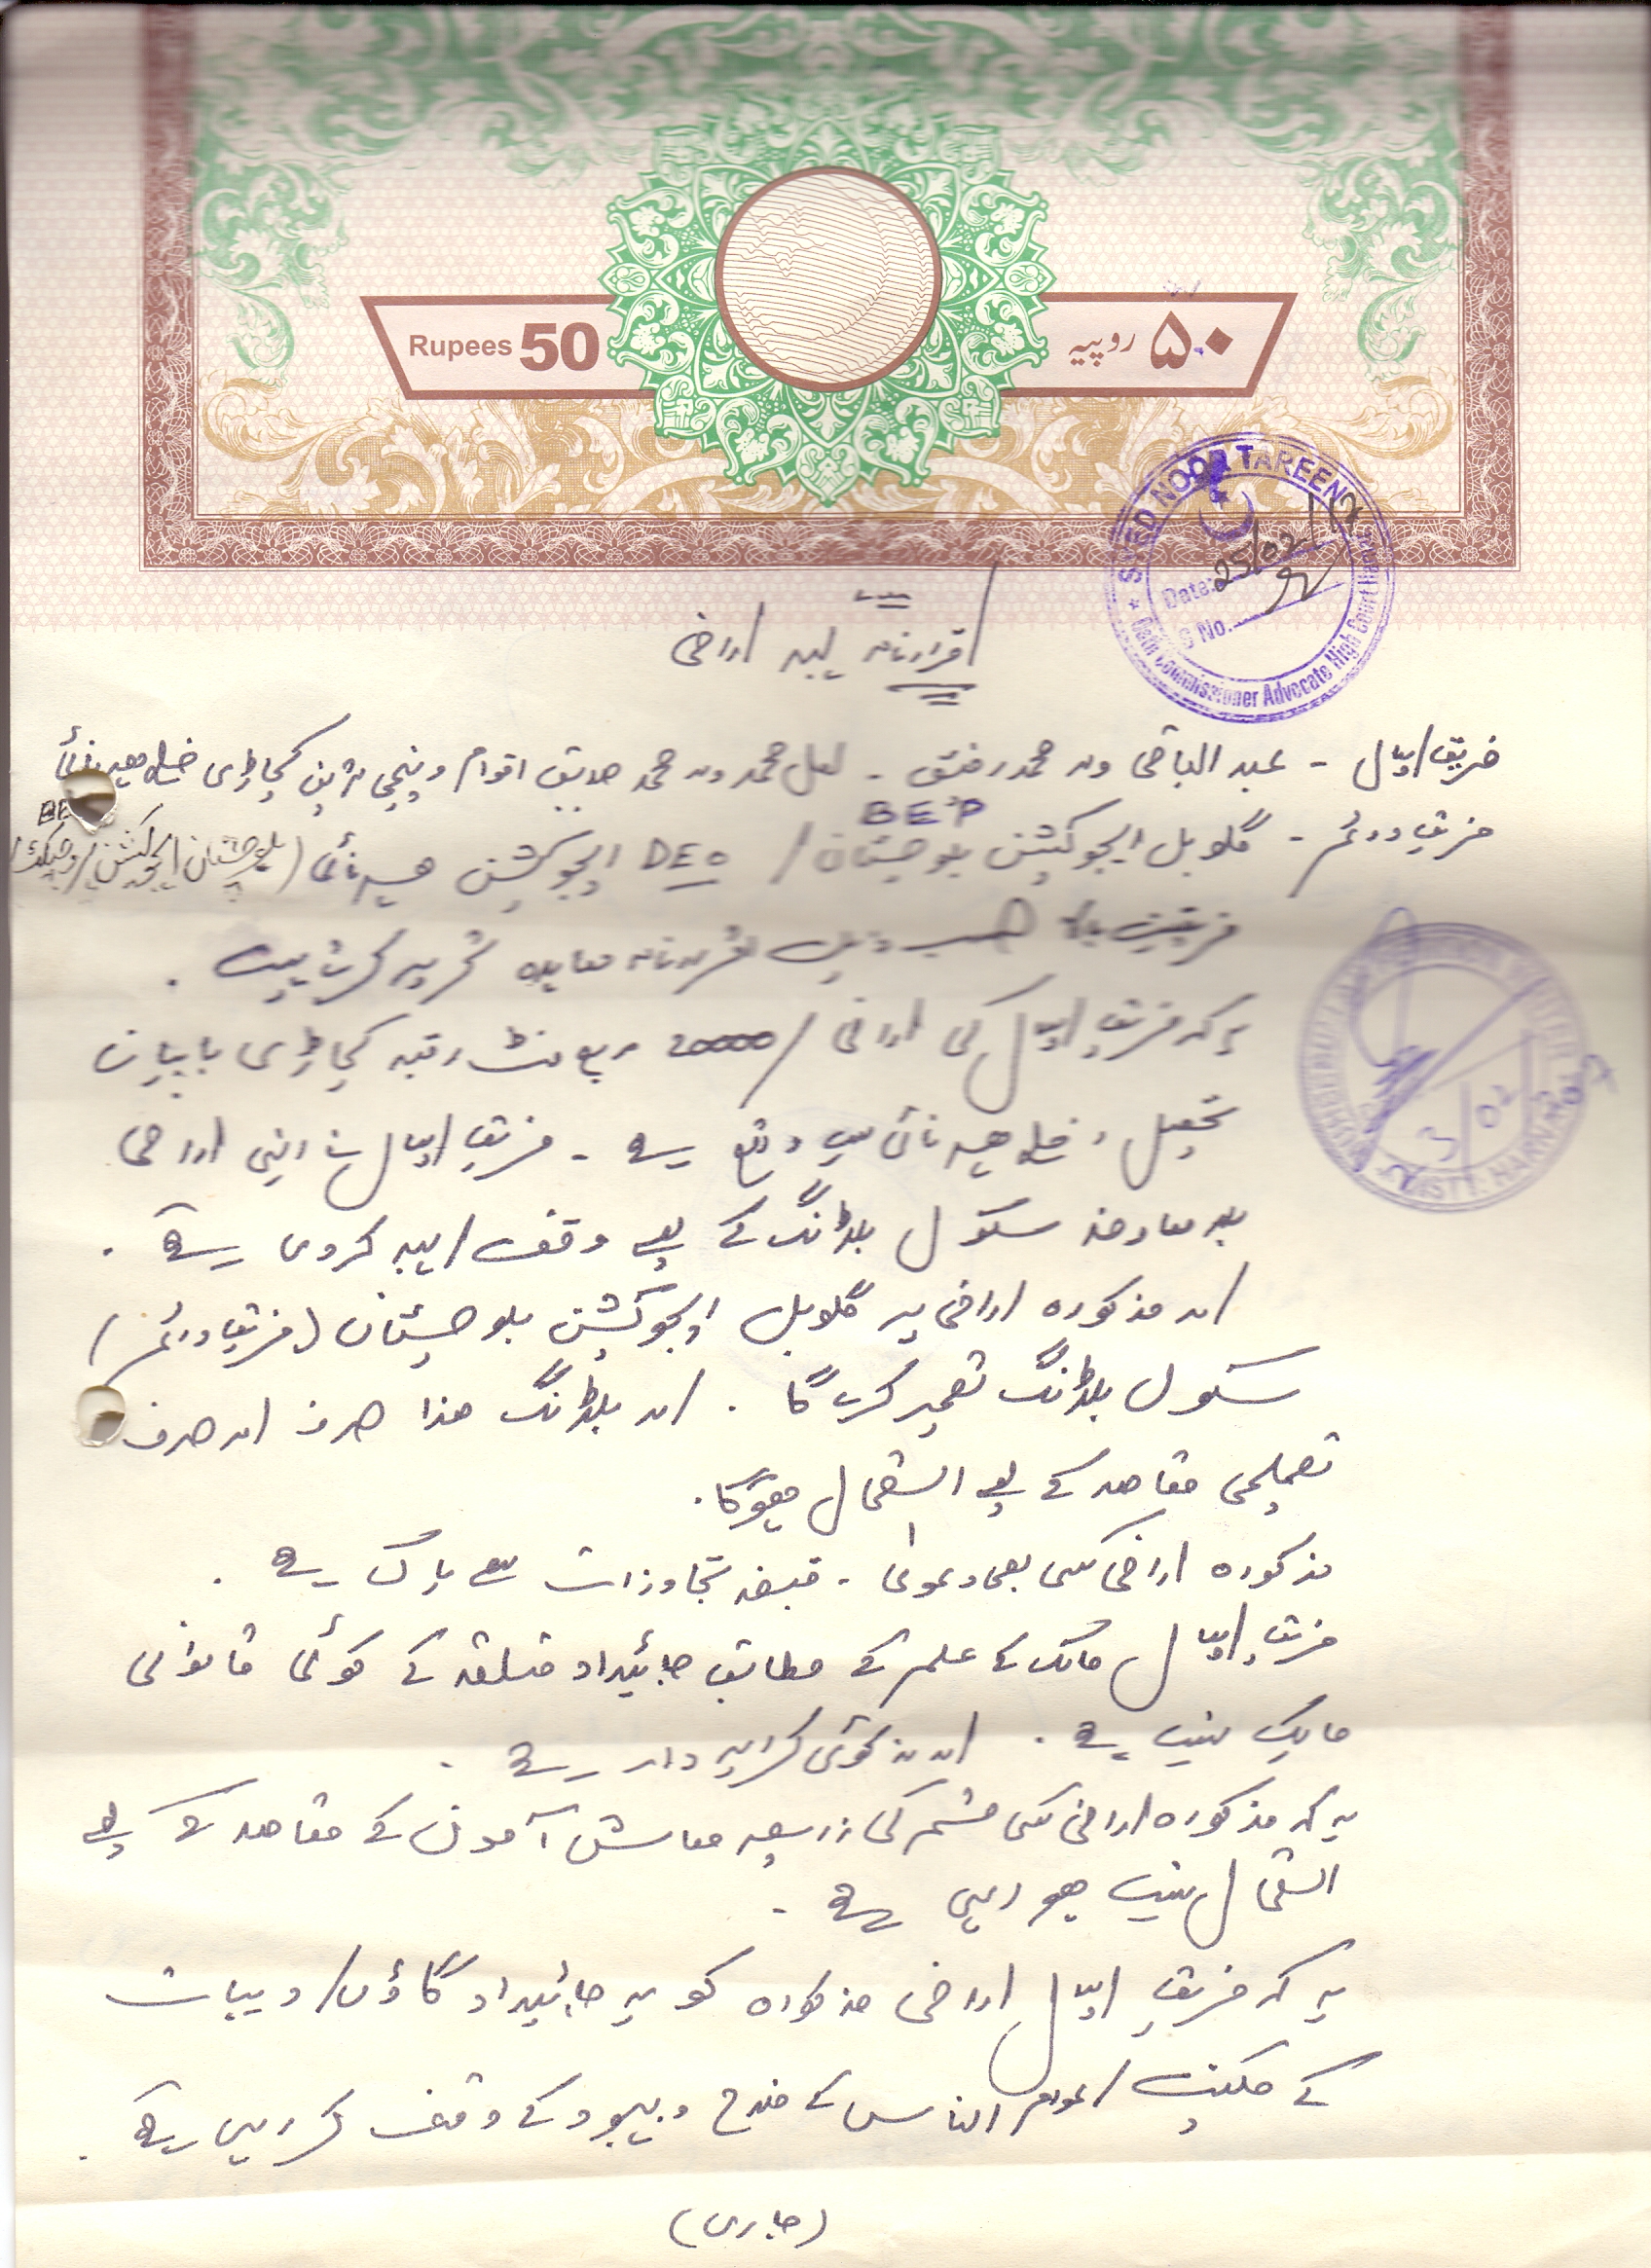 Rupees 50
۵۰ روپیہ
SYED NOOR TAREEN
Date: 25/02/
S No.
Oath Commissioner Advocate High Court
اقرارنامہ ہبہ اراضی
فریق اول - عبدالباقی ولد محمد رفیق - لعل محمد ولد محمد صدیق اقوام ونیچی ترین کچاڑی ضلع ہرنائی
BEP
فریق دوئم - گلوبل ایجوکیشن بلوچستان / DEO ایجوکیشن ہرنائی (بلوچستان ایجوکیشن پروجیکٹ)
فریقین بالا حسب ذیل اقرارنامہ معاہدہ تحریر کرتے ہیں .
یہ کہ فریق اول کی اراضی /20000 مربع فٹ رقبہ کچاڑی بابیان
تحصیل و ضلع ہرنائی میں واقع ہے - فریق اول نے اپنی اراضی
بلا معاوضہ سکول بلڈنگ کے لیے وقف / ہبہ کردی ہے .
اور مذکورہ اراضی پر گلوبل ایجوکیشن بلوچستان (فریق دوئم)
سکول بلڈنگ تعمیر کرے گا . اور بلڈنگ ھذا صرف اور صرف
تعلیمی مقاصد کے لیے استعمال ہوگا.
مذکورہ اراضی کسی بھی دعوٰی - قبضہ تجاوزات سے پاک ہے .
فریق اول مالک کے علم کے مطابق جائیداد متعلقہ کے کوئی قانونی
مالک نہیں ہے . اور نہ کوئی کرایہ دار ہے .
یہ کہ مذکورہ اراضی کسی قسم کی ذریعہ معاش آمدن کے مقاصد کے لیے
استعمال نہیں ہو رہی ہے .
یہ کہ فریق اول اراضی مذکورہ کو یہ جائیداد گاؤں / دیہات
کے ملکیت / عوام الناس کے فلاح و بہبود کے وقف کر رہی ہے .
(جاری)